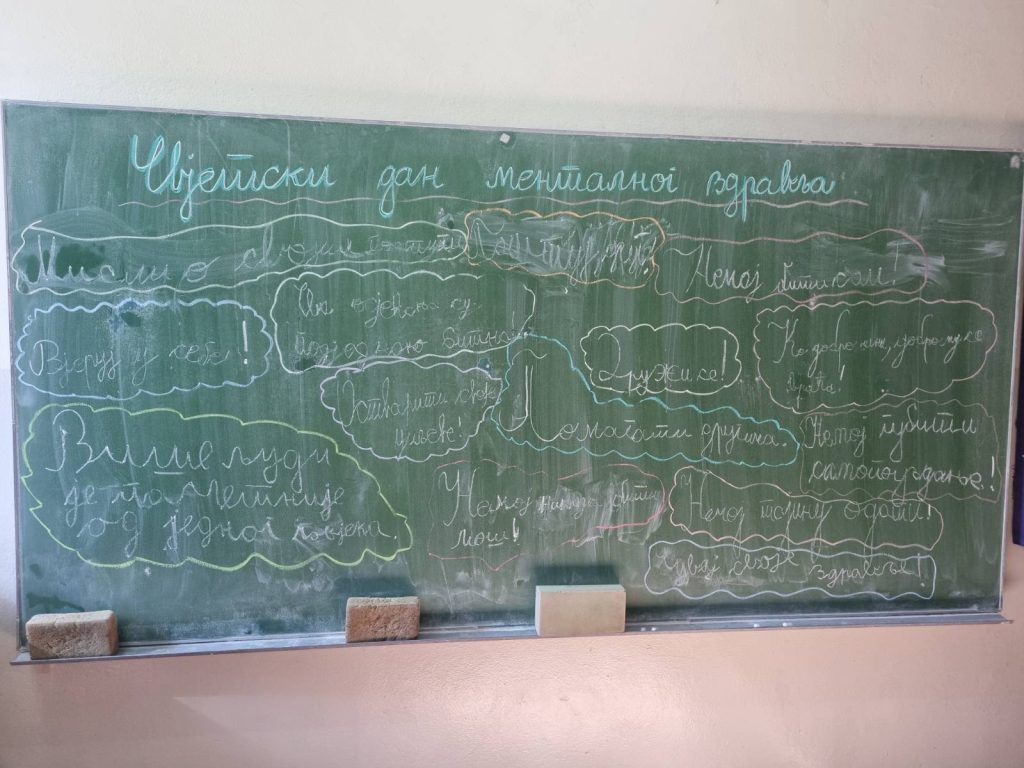 Свјетски дан менталног здравља
Мисли о својим
Поштуј
Немој бити сам!
Вјеруј у себе!
подједнако битна!
Дружи се!
Ко добро чини, добро му се
врати!
Остварити своје
циљеве!
Помагати другима.
Немој губити
самопоуздање!
Више људи
је паметније
од једног човјека.
Немој никада
моћ!
Немој тајну одати!
Чувај своје здравље!